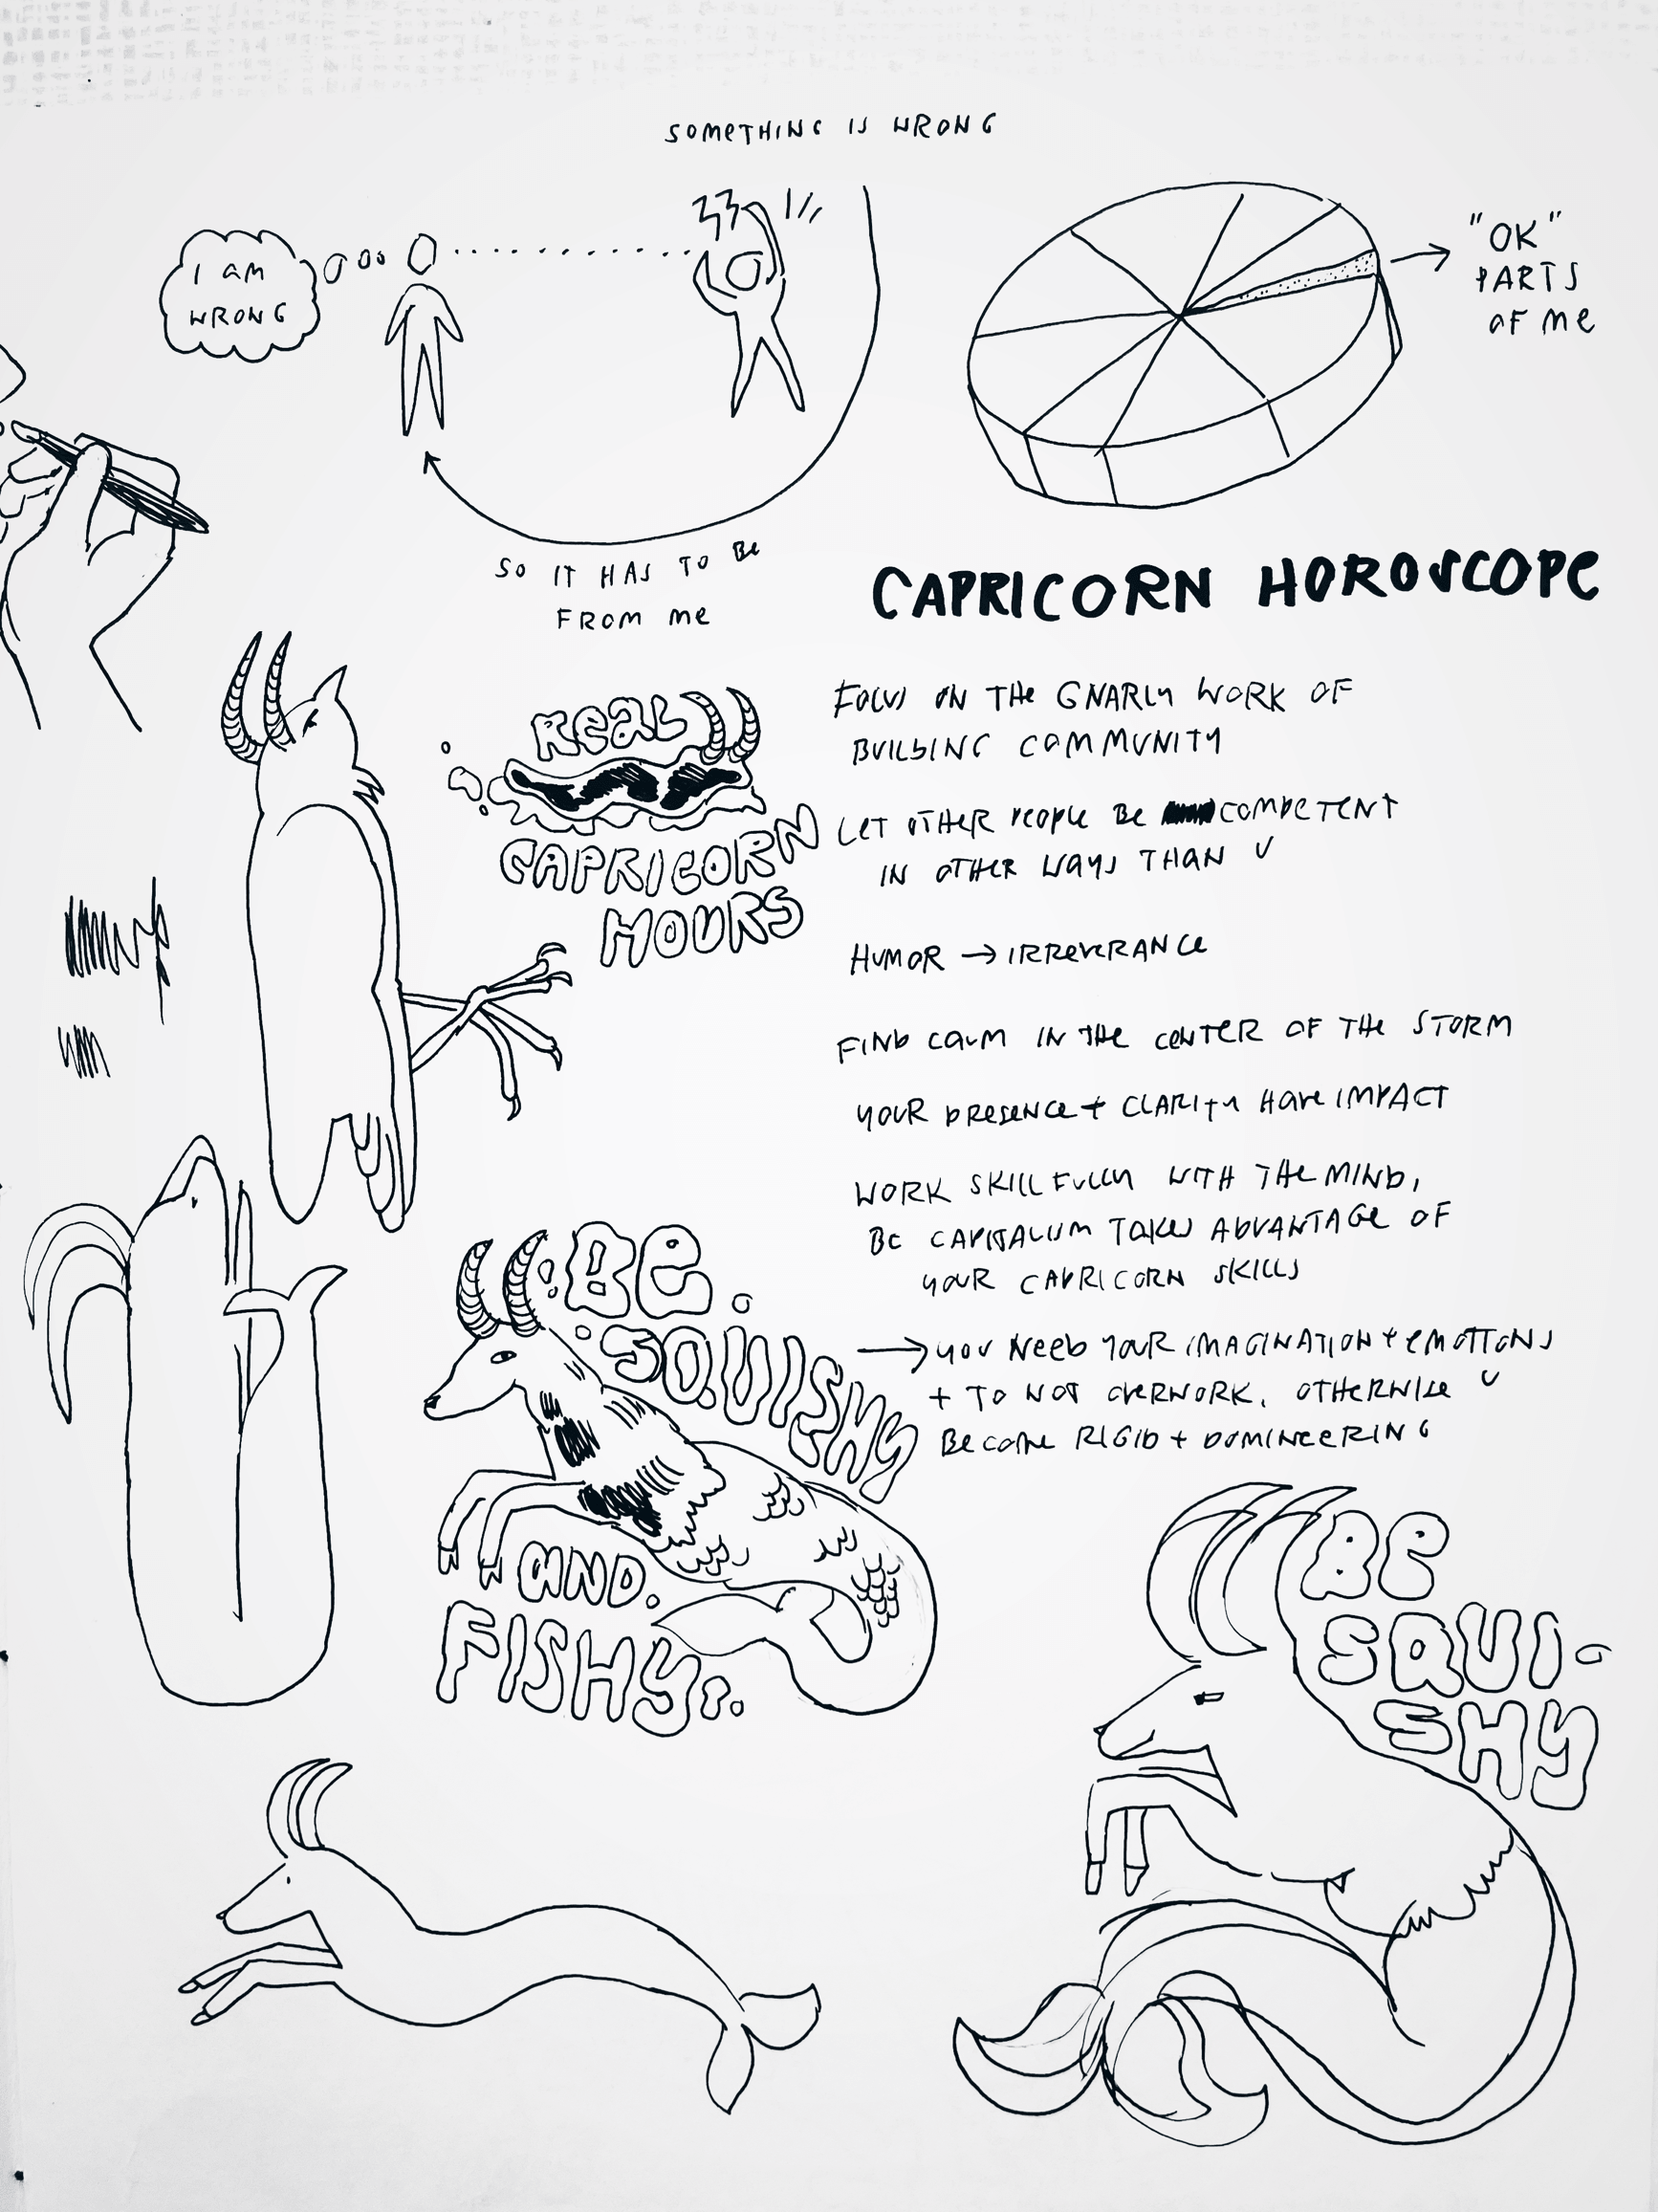 SOMETHING IS WRONG
I AM
WRONG
"OK"
PARTS
OF ME
SO IT HAS TO BE
FROM ME
CAPRICORN HOROSCOPE
FOCUS ON THE GNARLY WORK OF
BUILDING COMMUNITY
LET OTHER PEOPLE BE COMPETENT
IN OTHER WAYS THAN U
HUMOR → IRREVERANCE
FIND CALM IN THE CENTER OF THE STORM
YOUR PRESENCE + CLARITY HAVE IMPACT
WORK SKILLFULLY WITH THE MIND,
BC CAPITALISM TAKES ADVANTAGE OF
YOUR CAPRICORN SKILLS
→ YOU NEED YOUR IMAGINATION + EMOTIONS
+ TO NOT OVERWORK. OTHERWISE U
BECOME RIGID + DOMINEERING
REAL
CAPRICORN
HOURS
BE.
SQUISHY
AND.
FISHY.
BE
SQUI-
SHY